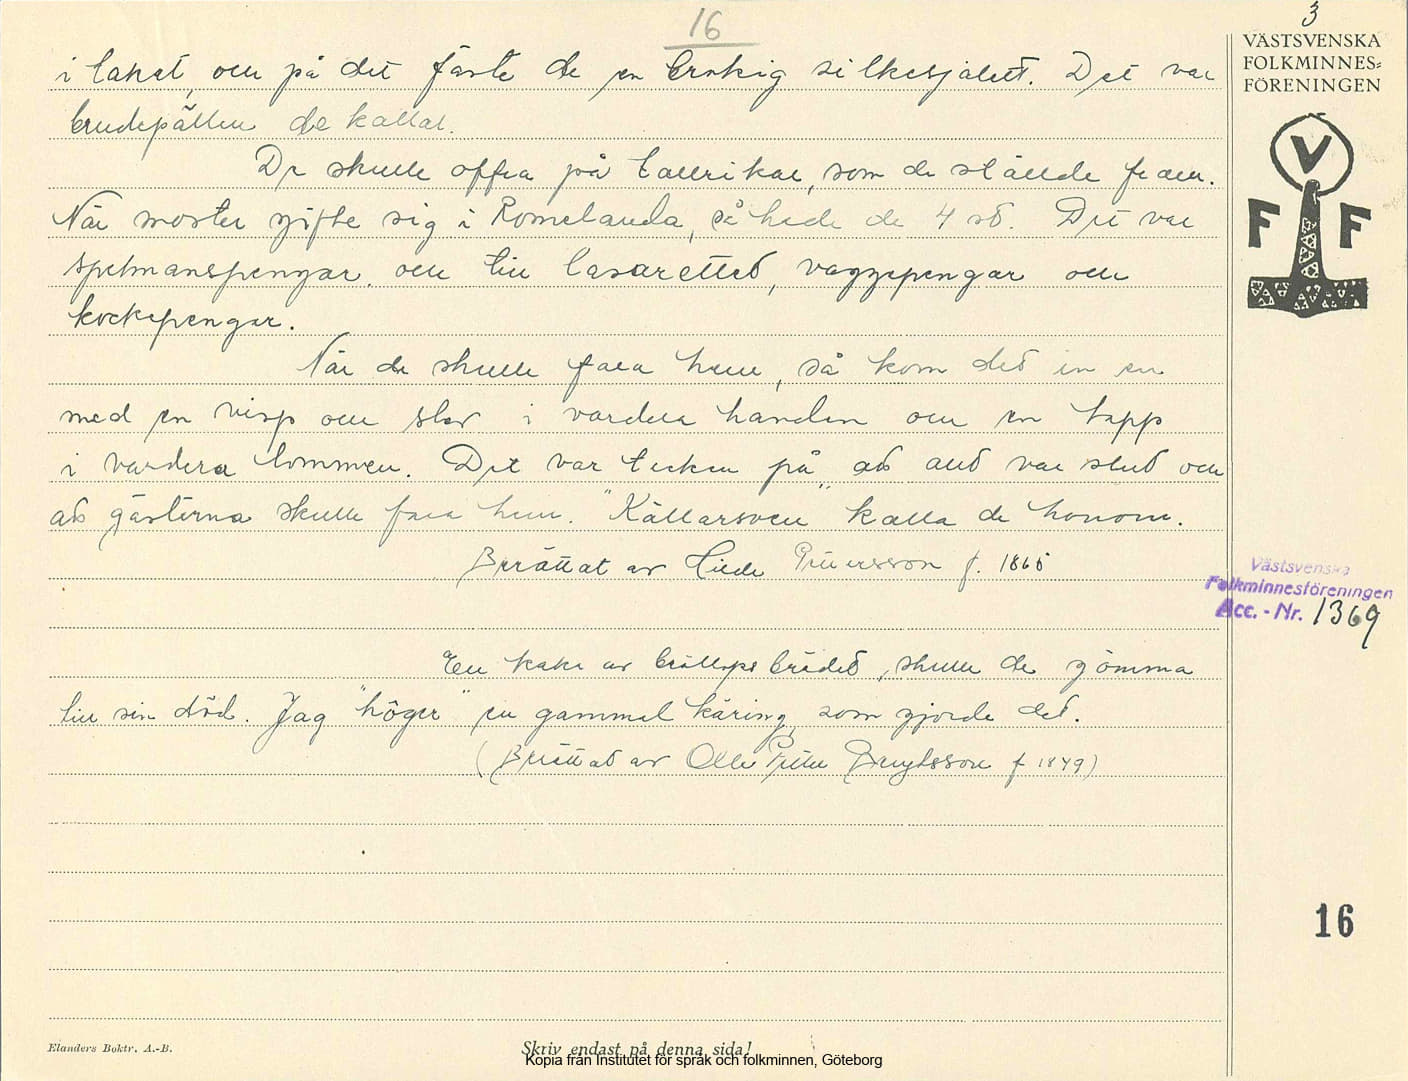 16
3
VÄSTSVENSKA
FOLKMINNES-
FÖRENINGEN
V
F F
i taket, och på det fäste de en brokig silkesjalett. Det var
brudepällen de kallat.
De skulle offra på tallrikar, som de ställde fram.
När moster gifte sig i Romelanda, så hade de 4 st. Det var
spelmanspengar och till lasarettet, vaggepengar och
kockepengar.
När de skulle fara hem, så kom det in en
med en visp och slev i vardera handen och en tapp
i vardera lommen. Det var tecken på att allt var slut och
att gästerna skulle fara hem. "Källarsven" kalla de honom.
Berättat av Hilda Pettersson f. 1865
Västsvenska
Folkminnesföreningen
Acc.-Nr. 1369
En kaka av bröllopsbrödet, skulle de gömma
till sin död. Jag "höger" en gammal käring, som gjorde det.
(Berättat av Olle Petter Bengtsson f 1849)
16
Elanders Boktr. A.-B.
Skriv endast på denna sida!
Kopia från Institutet för språk och folkminnen, Göteborg